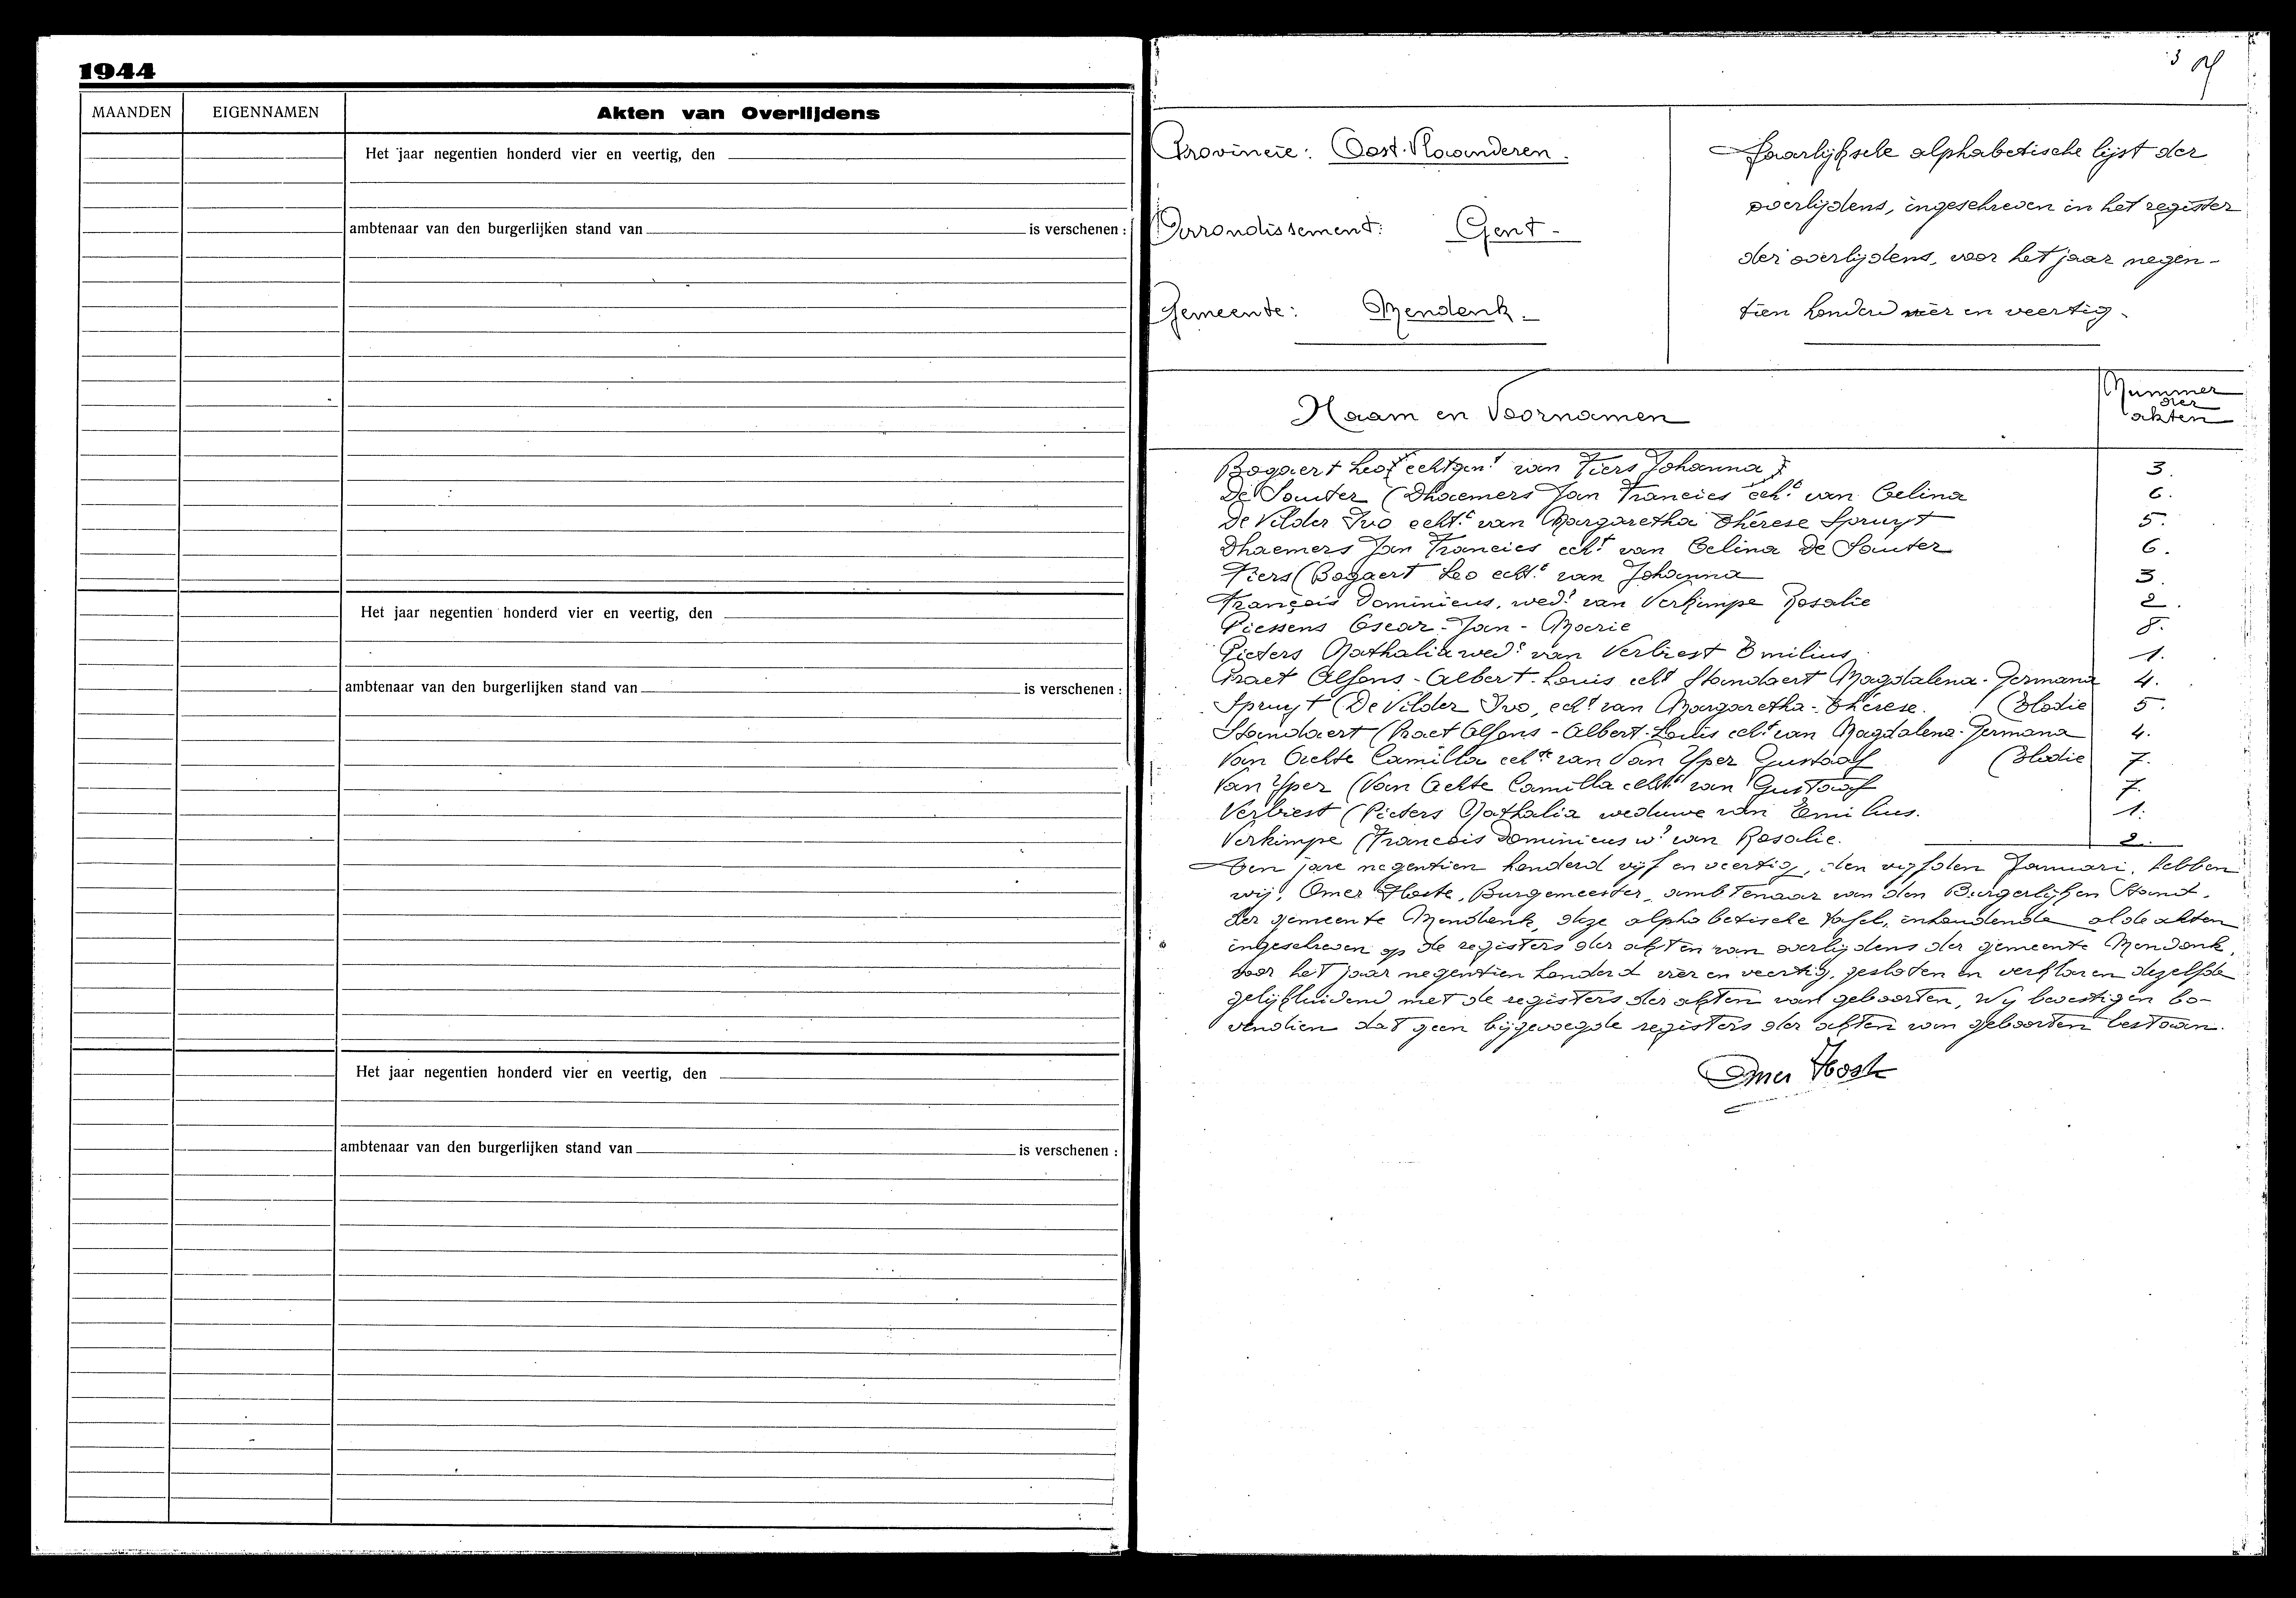 1944
MAANDEN EIGENNAMEN Akten van Overlijdens
Het jaar negentien honderd vier en veertig, den
ambtenaar van den burgerlijken stand van is verschenen :
Het jaar negentien honderd vier en veertig, den
ambtenaar van den burgerlijken stand van is verschenen :
Het jaar negentien honderd vier en veertig, den
ambtenaar van den burgerlijken stand van is verschenen :
3
Provincie: Oost-Vlaanderen.
Arrondissement: Gent -
Gemeente: Mendonk -
Jaarlijksche alphabetische lijst der
overlijdens, ingeschreven in het register
der overlijdens, voor het jaar negen-
tien honderd vier en veertig.
Naam en Voornamen
Nummer
der
akten
Bogaert Leo (echtgent van Fiers Johanna) 3.
De Souter (Dhaemers Jan Francies echt van Celina 6.
De Vilder Ivo echt van Margaretha Thérese Spruyt 5.
Dhaemers Jan Francies echt van Celina De Souter 6.
Fiers (Bogaert Leo echt van Johanna 3.
François Dominicus, wedr van Verkimpe Rosalie 2.
Piessens Oscar-Jan-Marie 8.
Pieters Nathalia wede van Verbiest Emilius 1.
Praet Alfons-Albert-Louis echt Standaert Magdalena-Germana 4.
Spruyt (De Vilder Ivo, echt van Margaretha-Thérese. (Elodie 5.
Standaert (Praet Alfons-Albert-Louis echt van Magdalena-Germana 4.
Van Achte Camilla echte van Van Yper Gustaaf (Elodie 7.
Van Yper (Van Achte Camilla echte van Gustaaf 7.
Verbiest (Pieters Nathalia weduwe van Emilius. 1.
Verkimpe (Francois Dominicus wr van Rosalie. 2.
Den jare negentien honderd vijf en veertig, den vijfden Januari, hebben
wij, Omer Hoste, Burgemeester, ambtenaar van den Burgerlijken Stand,
der gemeente Mendonk, deze alphabetische tafel, inhoudende al de akten
ingeschreven op de registers der akten van overlijdens der gemeente Mendonk,
voor het jaar negentien honderd vier en veertig, gesloten en verklaren dezelfde
gelijkluidend met de registers der akten van geboorten, Wij bevestigen bo-
vendien dat geen bijgevoegde registers der akten van geboorten bestaan.
Omer Hoste